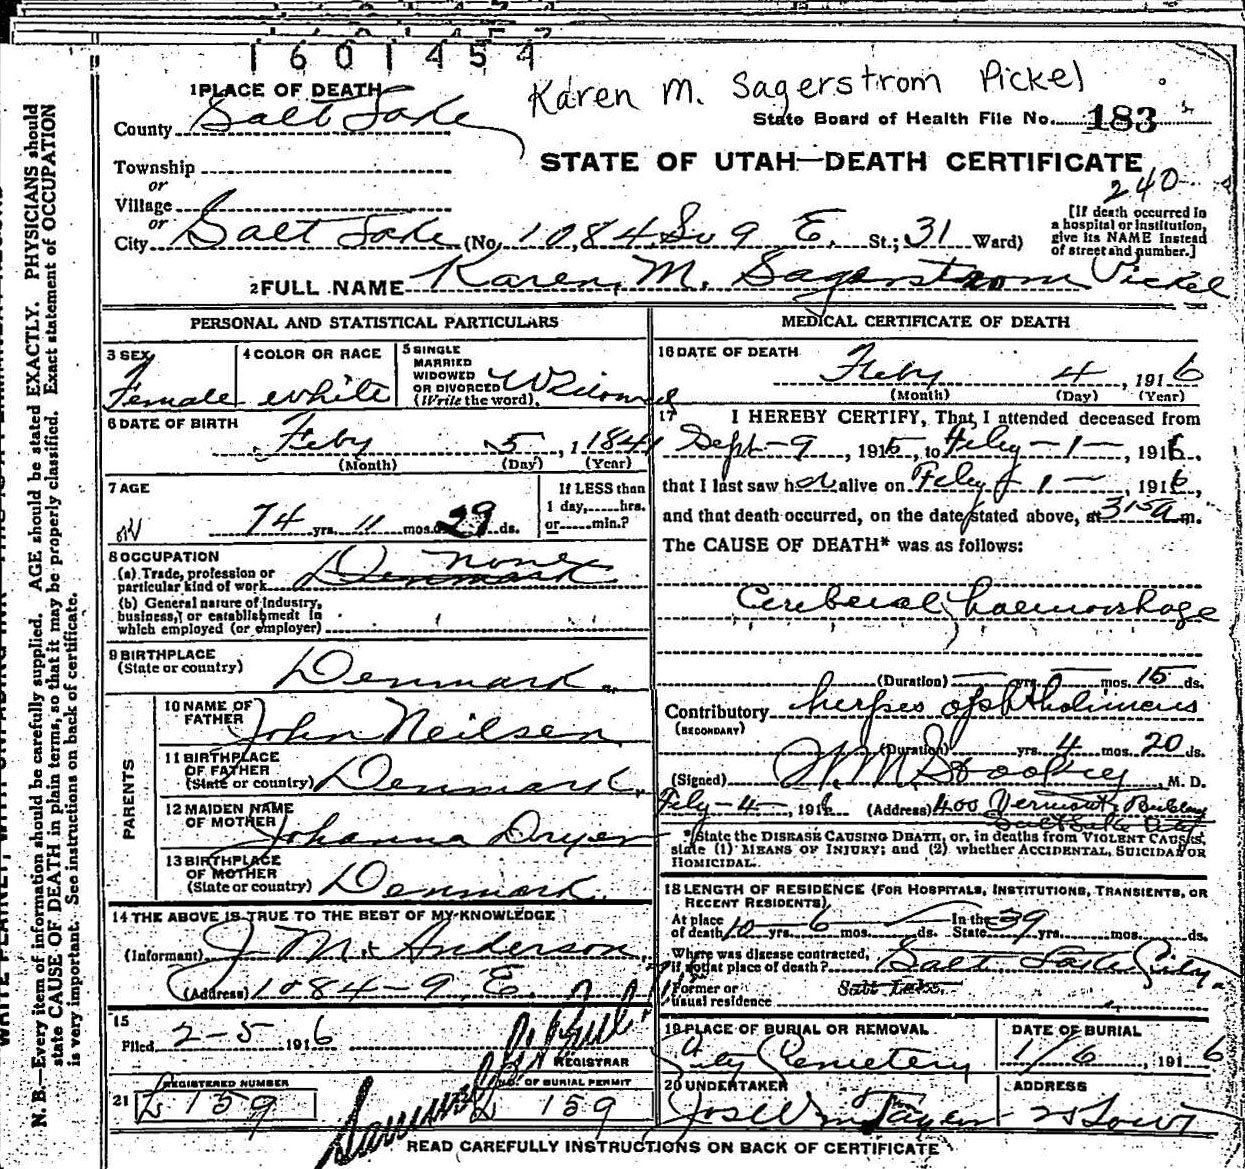 1601454
Karen M. Sagerstrom Pickel
1 PLACE OF DEATH
County Salt Lake
State Board of Health File No. 183
STATE OF UTAH—DEATH CERTIFICATE
Township
or
Village
or
240
[If death occurred in
a hospital or institution,
give its NAME instead
of street and number.]
City Salt Lake (No. 1084 So 9 E. St.; 31 Ward)
2 FULL NAME Karen M. Sagerstrom Pickel
PERSONAL AND STATISTICAL PARTICULARS
3 SEX Female
4 COLOR OR RACE white
5 SINGLE
MARRIED
WIDOWED
OR DIVORCED
(Write the word). Widowed
6 DATE OF BIRTH
Feby 5, 1841
(Month) (Day) (Year)
7 AGE
74 yrs. 11 mos. 29 ds.
If LESS than
1 day, hrs.
or min.?
8 OCCUPATION
(a) Trade, profession or
particular kind of work none Denmark
(b) General nature of industry,
business, or establishment in
which employed (or employer)
9 BIRTHPLACE
(State or country) Denmark
PARENTS
10 NAME OF
FATHER John Neilsen
11 BIRTHPLACE
OF FATHER
(State or country) Denmark
12 MAIDEN NAME
OF MOTHER Johanna Dryer
13 BIRTHPLACE
OF MOTHER
(State or country) Denmark
14 THE ABOVE IS TRUE TO THE BEST OF MY KNOWLEDGE
(Informant) J. M. Anderson
(Address) 1084-9 E.
15
Filed 2-5 1916
REGISTRAR
REGISTERED NUMBER
NO. OF BURIAL PERMIT
21 159 159
MEDICAL CERTIFICATE OF DEATH
16 DATE OF DEATH
Feby 4, 1916
(Month) (Day) (Year)
17 I HEREBY CERTIFY, That I attended deceased from
Sept-9, 1915, to Feby-1-, 1916,
that I last saw her alive on Feby 1-, 1916,
and that death occurred, on the date stated above, at 315a m.
The CAUSE OF DEATH* was as follows:
Cerebral haemorrhage
(Duration) yrs. mos. 15 ds.
Contributory herpes
(SECONDARY)
(Duration) yrs. 4 mos. 20 ds.
(Signed) , M. D.
Feby-4-, 1916 (Address) 400 Vermont Building
Salt Lake City
*State the DISEASE CAUSING DEATH, or, in deaths from VIOLENT CAUSES,
state (1) MEANS OF INJURY; and (2) whether ACCIDENTAL, SUICIDAL OR
HOMICIDAL.
18 LENGTH OF RESIDENCE (FOR HOSPITALS, INSTITUTIONS, TRANSIENTS, OR
RECENT RESIDENTS)
At place
of death 10 yrs. 6 mos. ds. In the
State 39 yrs. mos. ds.
Where was disease contracted,
if not at place of death? Salt Lake City
Former or
usual residence Salt Lake.
19 PLACE OF BURIAL OR REMOVAL
City Cemetery
DATE OF BURIAL
1/6, 1916
20 UNDERTAKER
Jos Wm Taylor
ADDRESS
READ CAREFULLY INSTRUCTIONS ON BACK OF CERTIFICATE
N. B.—Every item of information should be carefully supplied. AGE should be stated EXACTLY. PHYSICIANS should
state CAUSE OF DEATH in plain terms, so that it may be properly classified. Exact statement of OCCUPATION
is very important. See instructions on back of certificate.